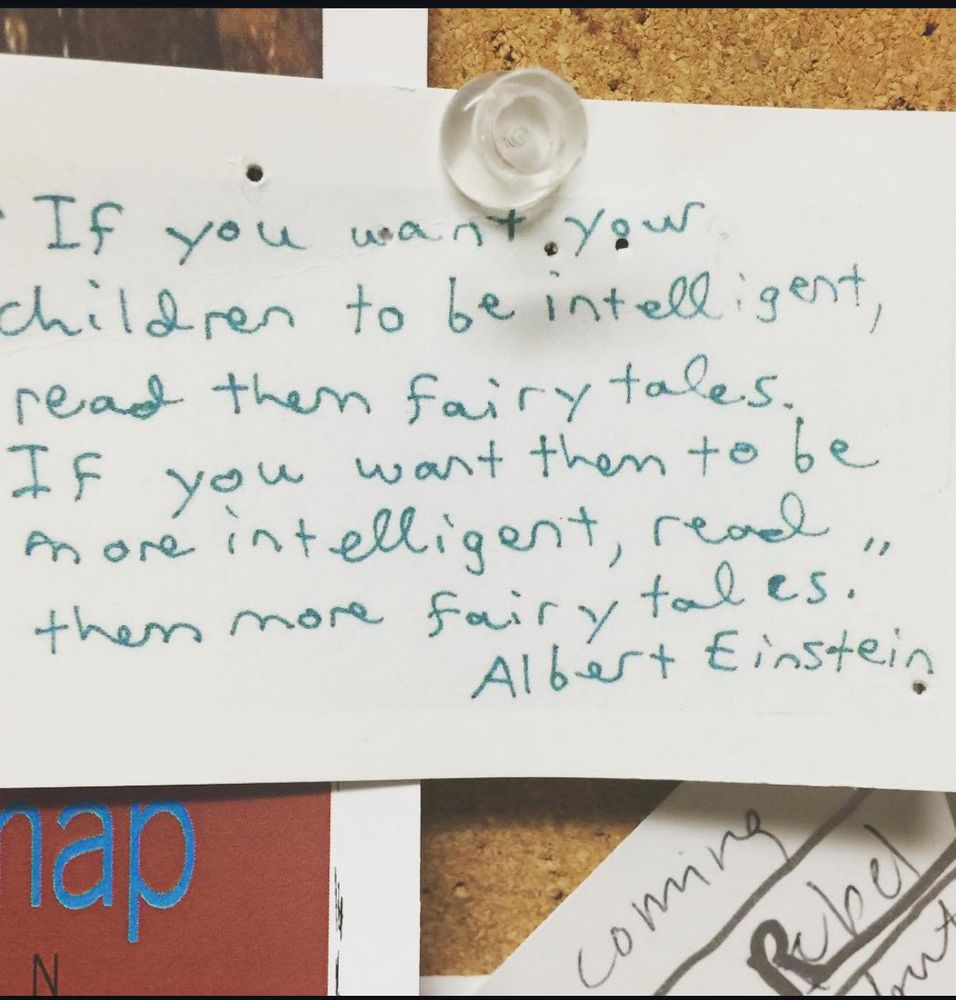 " If you want your
children to be intelligent,
read them fairy tales.
If you want them to be
more intelligent, read
them more fairy tales."
Albert Einstein
map
N
coming
Rebel
but